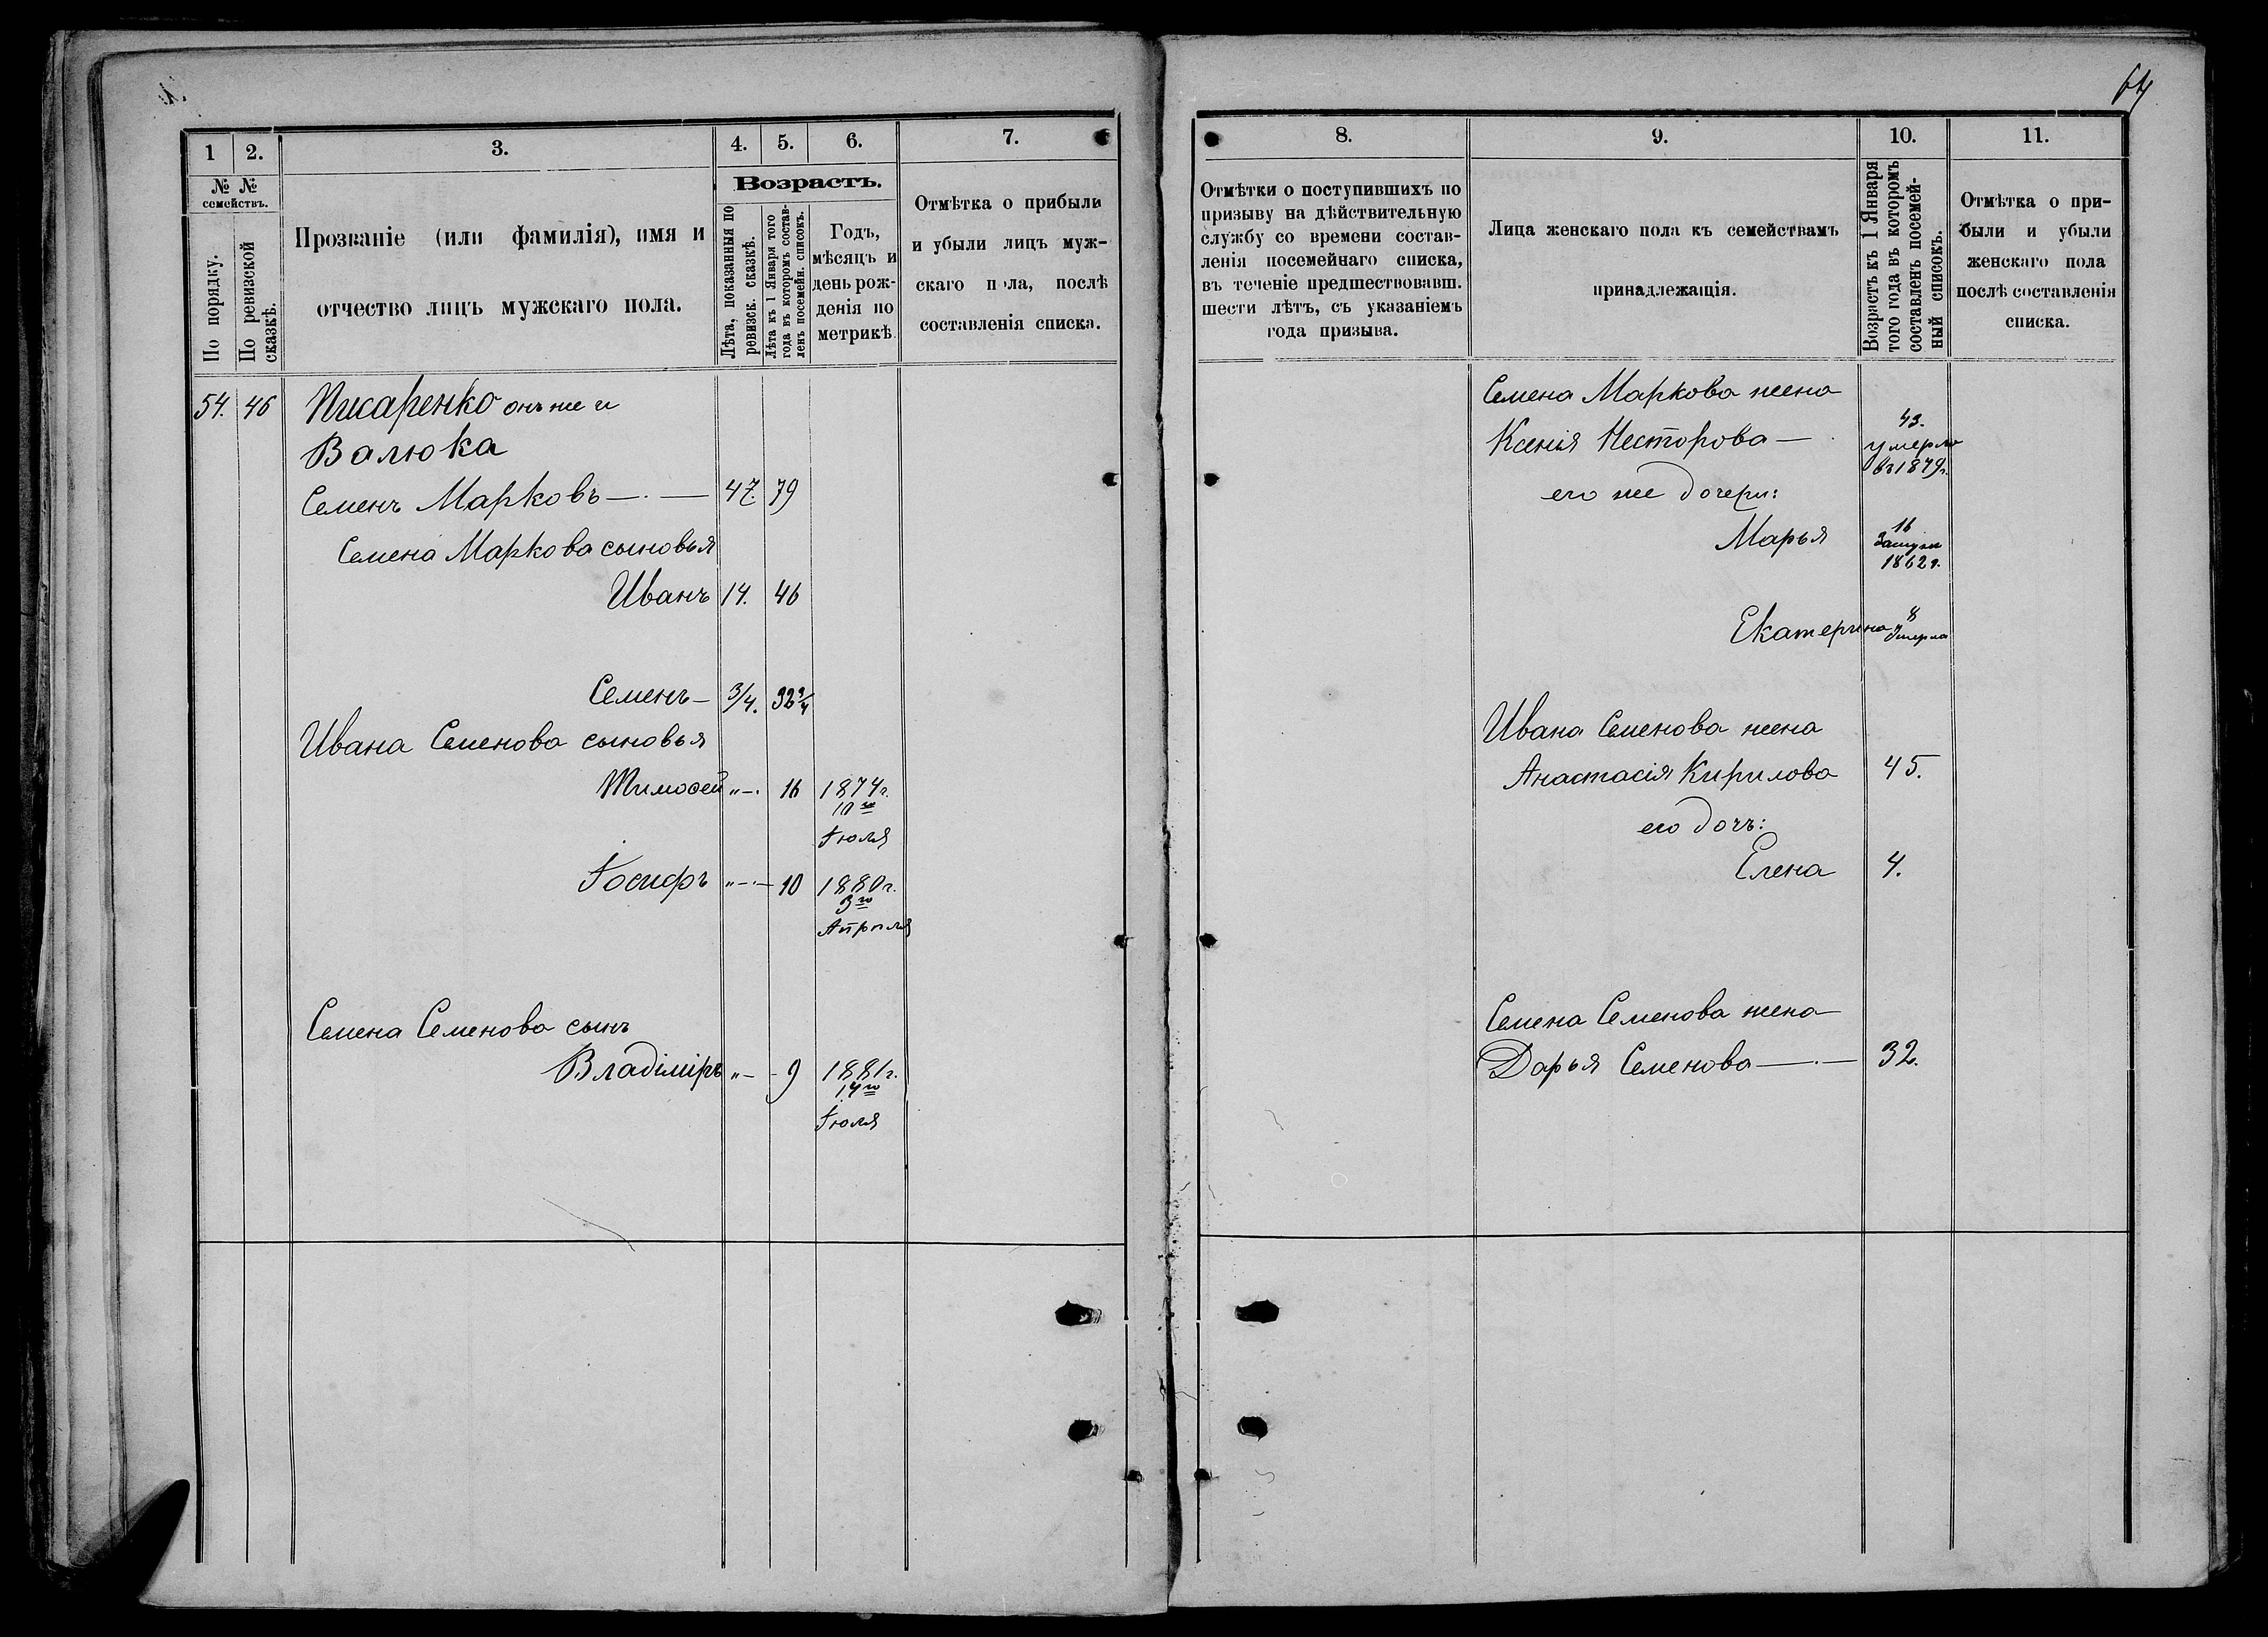 64
1
2.
3.
4.
5.
6.
7.
№ №
семействъ.
По порядку.
По ревизской
сказкѣ.
Прозваніе (или фамилія), имя и
отчество лицъ мужскаго пола.
Возрастъ.
Лѣта, показанныя по
ревизск. сказкѣ.
Лѣта къ 1 Января того
года въ которомъ состав-
ленъ посемейн. списокъ.
Годъ,
мѣсяцъ и
день рож-
денія по
метрикѣ
Отмѣтка о прибыли
и убыли лицъ муж-
скаго пола, послѣ
составленія списка.
54. 46 Писаренко онъ же и
Валюка
Семенъ Марковъ — . — 47. 79
Семена Маркова сыновья
Иванъ 14. 46
Семенъ — 3/4. 32 3/4
Ивана Семенова сыновья
Тимофей „ — . 16 1874 г.
10го
Іюля
Іосифъ „ — . — 10 1880 г.
3го
Апрѣля
Семена Семенова сынъ
Владиміръ „ — - 9 1881 г.
14го
Іюля
8.
9.
10.
11.
Отмѣтки о поступившихъ по
призыву на дѣйствительную
службу со времени состав-
ленія посемейнаго списка,
въ теченіе предшествовавш.
шести лѣтъ, съ указаніемъ
года призыва.
Лица женскаго пола къ семействамъ
принадлежащія.
Возрастъ къ 1 Января
того года въ которомъ
составленъ посемей-
ный списокъ.
Отмѣтка о при-
были и убыли
женскаго пола
послѣ составленія
списка.
Семена Маркова жена
Ксенія Несторова — 43.
умерла
въ 1879 г.
его же дочери:
Марья 16
Замужъ
1862 г.
Екатерина „ 8
умерла
Ивана Семенова жена
Анастасія Кирилова 45.
его дочь:
Елена 4.
Семена Семенова жена
Дарья Семенова — . — 32.